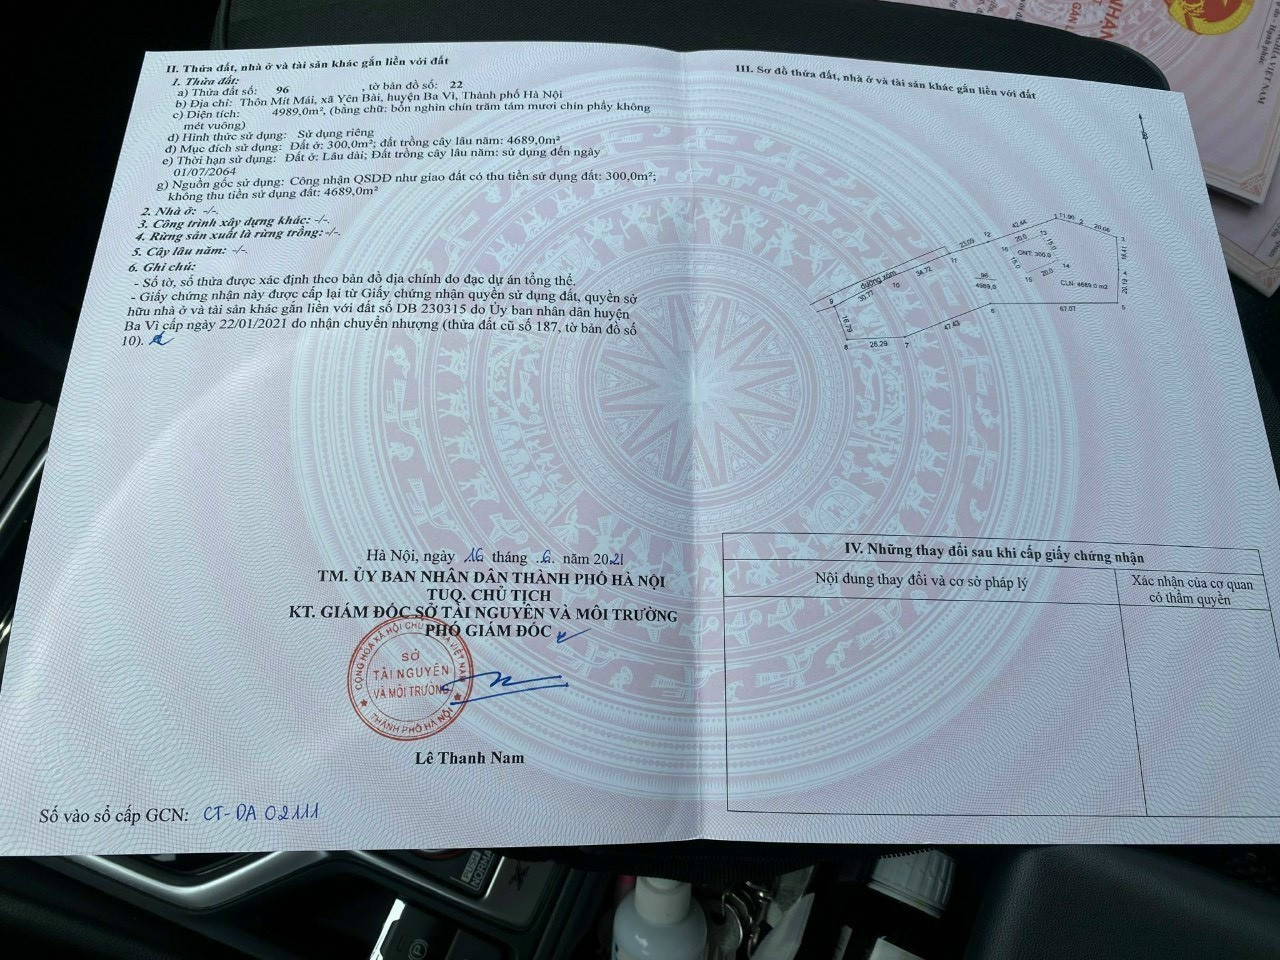 II. Thửa đất, nhà ở và tài sản khác gắn liền với đất
1. Thửa đất:
a) Thửa đất số: 96 , tờ bản đồ số: 22
b) Địa chỉ: Thôn Mít Mái, xã Yên Bài, huyện Ba Vì, Thành phố Hà Nội
c) Diện tích: 4989,0m², (bằng chữ: bốn nghìn chín trăm tám mươi chín phẩy không
mét vuông)
d) Hình thức sử dụng: Sử dụng riêng
đ) Mục đích sử dụng: Đất ở: 300,0m²; đất trồng cây lâu năm: 4689,0m²
e) Thời hạn sử dụng: Đất ở: Lâu dài; Đất trồng cây lâu năm: sử dụng đến ngày
01/07/2064
g) Nguồn gốc sử dụng: Công nhận QSDĐ như giao đất có thu tiền sử dụng đất: 300,0m²;
không thu tiền sử dụng đất: 4689,0m²
2. Nhà ở: -/-.
3. Công trình xây dựng khác: -/-.
4. Rừng sản xuất là rừng trồng: -/-.
5. Cây lâu năm: -/-.
6. Ghi chú:
- Số tờ, số thửa được xác định theo bản đồ địa chính đo đạc dự án tổng thể.
- Giấy chứng nhận này được cấp lại từ Giấy chứng nhận quyền sử dụng đất, quyền sở
hữu nhà ở và tài sản khác gắn liền với đất số DB 230315 do Ủy ban nhân dân huyện
Ba Vì cấp ngày 22/01/2021 do nhận chuyển nhượng (thửa đất cũ số 187, tờ bản đồ số
10).
Hà Nội, ngày 16 tháng 6. năm 2021
TM. ỦY BAN NHÂN DÂN THÀNH PHỐ HÀ NỘI
TUQ. CHỦ TỊCH
KT. GIÁM ĐỐC SỞ TÀI NGUYÊN VÀ MÔI TRƯỜNG
PHÓ GIÁM ĐỐC
CỘNG HÒA XÃ HỘI CHỦ NGHĨA VIỆT NAM
SỞ
TÀI NGUYÊN
VÀ MÔI TRƯỜNG
THÀNH PHỐ HÀ NỘI
Lê Thanh Nam
Số vào sổ cấp GCN: CT-DA 02111
III. Sơ đồ thửa đất, nhà ở và tài sản khác gắn liền với đất
B
1 11.90 2 20.06 3
42.44
12 23.09
11
20.0 13
16 ONT: 300.0
15.0 15.0
14
15 20.0
18.41
4
20.19
5
CLN: 4689.0 m2
96
4989,0
34.72
10
đường xóm
30.77
9
16.79
8 26.29 7
47.43
6 67.07
IV. Những thay đổi sau khi cấp giấy chứng nhận
Nội dung thay đổi và cơ sở pháp lý
Xác nhận của cơ quan
có thẩm quyền